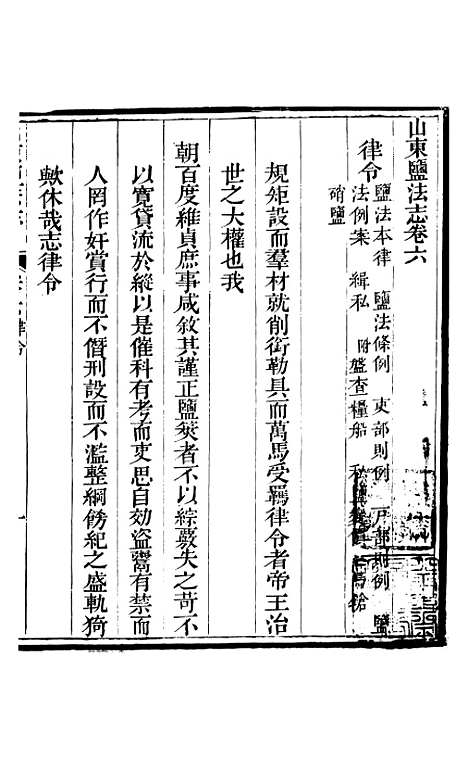 山東鹽法志卷六
律令
鹽法本律 鹽法條例 吏部則例 戶部則例 鹽
法例案 緝私 附盤查糧船 私鹽
硝鹽
規矩設而羣材就削銜勒具而萬馬受羈律令者帝王治
世之大權也我
朝百度維貞庶事咸敘其謹正鹽筴者不以綜覈失之苛不
以寛貸流於縱以是催科有考而吏思自効盜鬻有禁而
人罔作奸賞行而不僭刑設而不濫整綱飭紀之盛軌猗
歟休哉志律令